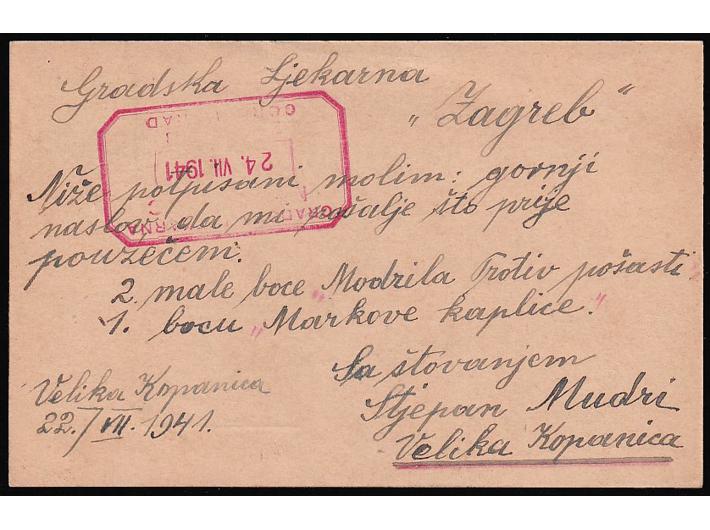 Gradska Ljekarna
"Zagreb"
GRADSKA LJEKARNA
24. VII. 1941
GORNJI GRAD
Niže potpisani molim: gornji
naslov, da mi pošalje što prije
pouzećem:
2 male boce "Modrila Protiv pošasti"
1. bocu "Markove kaplice."
Sa štovanjem
Velika Kopanica
Stjepan Mudri
22./VII. 1941.
Velika Kopanica